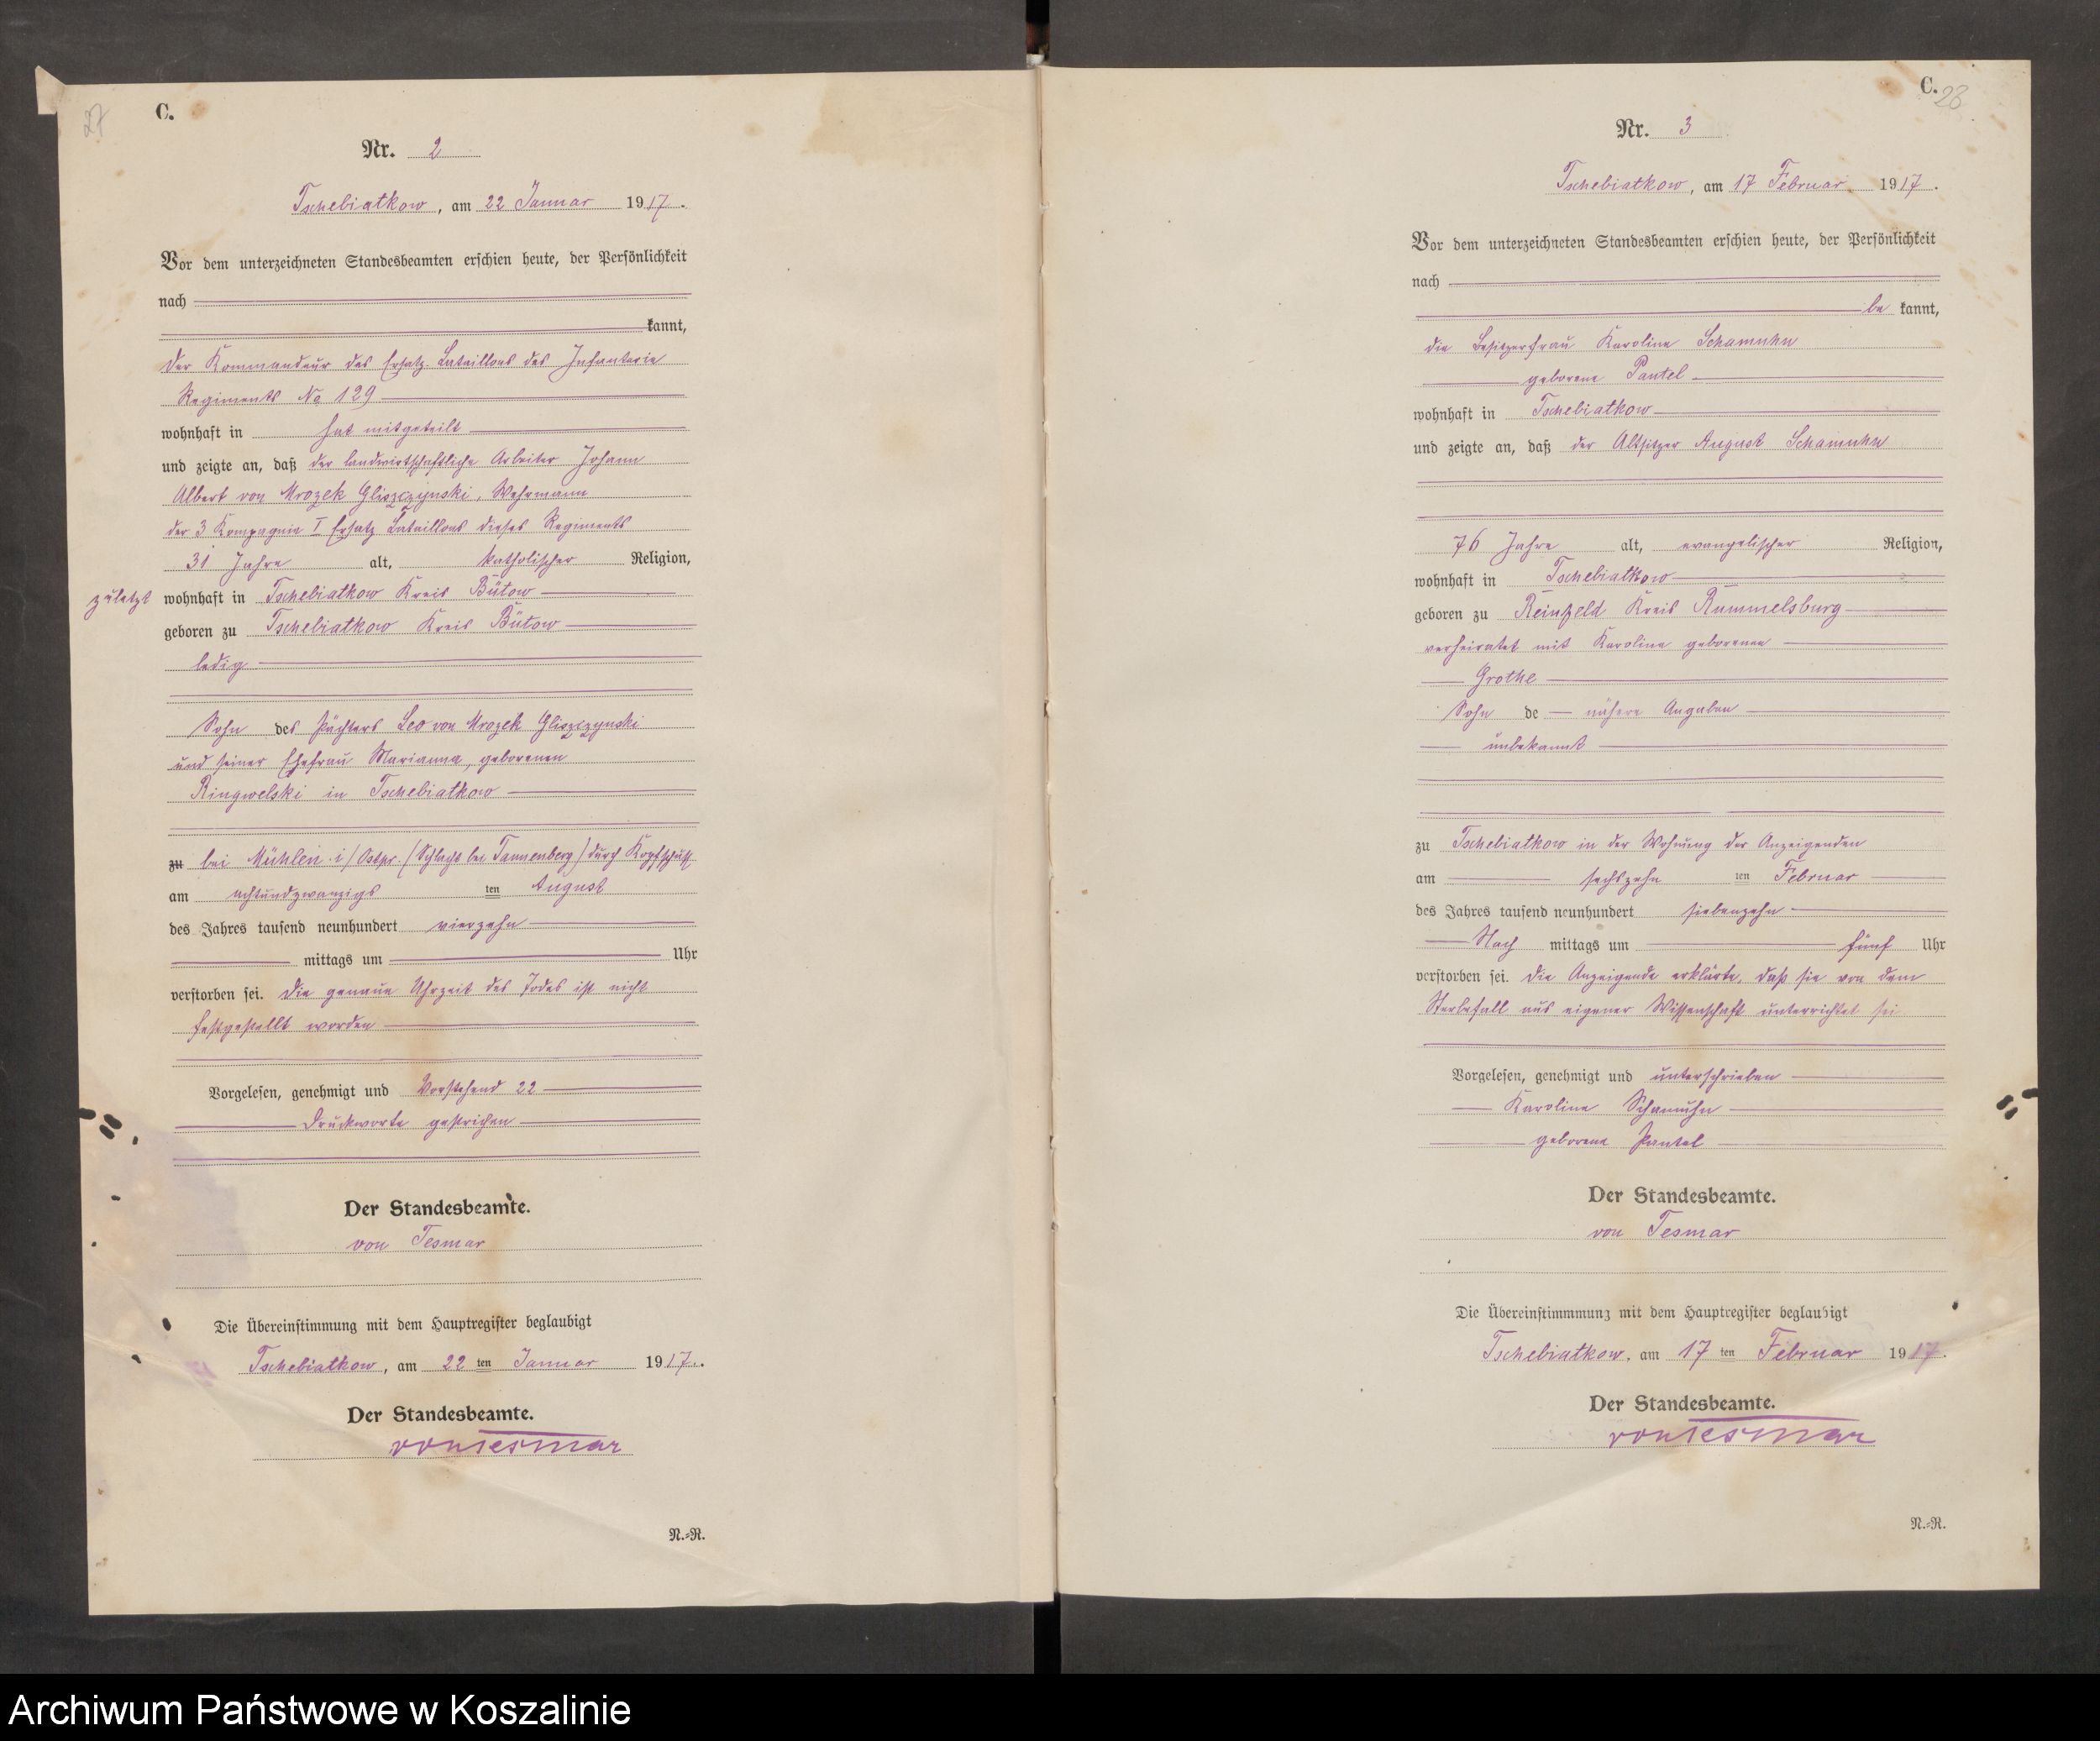 27
C.
Nr. 2
Tschebiatkow, am 22 Januar 1917.
Vor dem unterzeichneten Standesbeamten erschien heute, der Persönlichkeit
nach
kannt,
Der Kommandeur des Ersatz Bataillons des Infanterie
Regiments No 129
wohnhaft in hat mitgeteilt
und zeigte an, daß der landwirtschaftliche Arbeiter Johann
Albert von Mrozek Gliszczynski, Wehrmann
der 3 Kompagnie I Ersatz Bataillons dieses Regiments
31 Jahre alt, katholischer Religion,
zuletzt wohnhaft in Tschebiatkow Kreis Bütow
geboren zu Tschebiatkow Kreis Bütow
ledig
Sohn des Pächters Leo von Mrozek Gliszczynski
und seiner Ehefrau Marianna, geborenen
Ringwelski in Tschebiatkow
zu bei Mühlen i/Ostpr. (Schlacht bei Tannenberg) durch Kopfschuß
am achtundzwanzigs ten August
des Jahres tausend neunhundert vierzehn
mittags um Uhr
verstorben sei. Die genaue Uhrzeit des Todes ist nicht
festgestellt worden
Vorgelesen, genehmigt und Vorstehend 22
Druckworte gestrichen
Der Standesbeamte.
von Tesmar
Die Übereinstimmung mit dem Hauptregister beglaubigt
Tschebiatkow, am 22 ten Januar 1917.
Der Standesbeamte.
von Tesmar
N.=R.
C. 28
Nr. 3
Tschebiatkow, am 17 Februar 1917.
Vor dem unterzeichneten Standesbeamten erschien heute, der Persönlichkeit
nach
be kannt,
die Besitzerfrau Karoline Schamuhn
geborene Pantel
wohnhaft in Tschebiatkow
und zeigte an, daß der Altsitzer August Schamuhn
76 Jahre alt, evangelischer Religion,
wohnhaft in Tschebiatkow
geboren zu Reinfeld Kreis Rummelsburg
verheiratet mit Karoline geborenen
Grothe
Sohn de nähere Angaben
unbekannt
zu Tschebiatkow in der Wohnung der Anzeigenden
am sechszehn ten Februar
des Jahres tausend neunhundert siebenzehn
Nach mittags um fünf Uhr
verstorben sei. Die Anzeigende erklärte, daß sie von dem
Sterbefall aus eigener Wissenschaft unterrichtet sei
Vorgelesen, genehmigt und unterschrieben
Karoline Schamuhn
geborene Pantel
Der Standesbeamte.
von Tesmar
Die Übereinstimmmung mit dem Hauptregister beglaubigt
Tschebiatkow, am 17 ten Februar 1917.
Der Standesbeamte.
von Tesmar
N.=R.
Archiwum Państwowe w Koszalinie